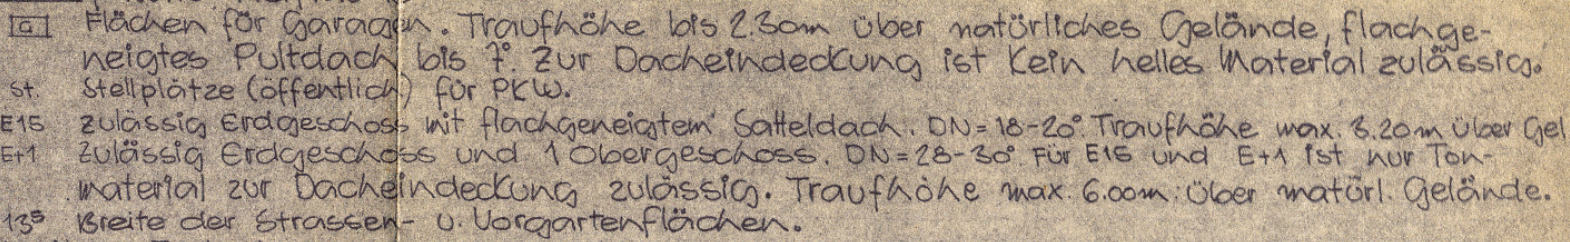 G Flächen für Garagen. Traufhöhe bis 2.30m über natürliches Gelände, flachge-
neigtes Pultdach bis 7°. Zur Dacheindeckung ist kein helles Material zulässig.
St. Stellplätze (öffentlich) für PKW.
E15 zulässig Erdgeschoss mit flachgeneigtem Satteldach. DN=18-20°. Traufhöhe max. 3.20m über Gel
E+1 zulässig Erdgeschoss und 1 Obergeschoss. DN=28-30° Für E15 und E+1 ist nur Ton-
material zur Dacheindeckung zulässig. Traufhöhe max. 6.00m über natürl. Gelände.
13⁵ Breite der Strassen- u. Vorgartenflächen.